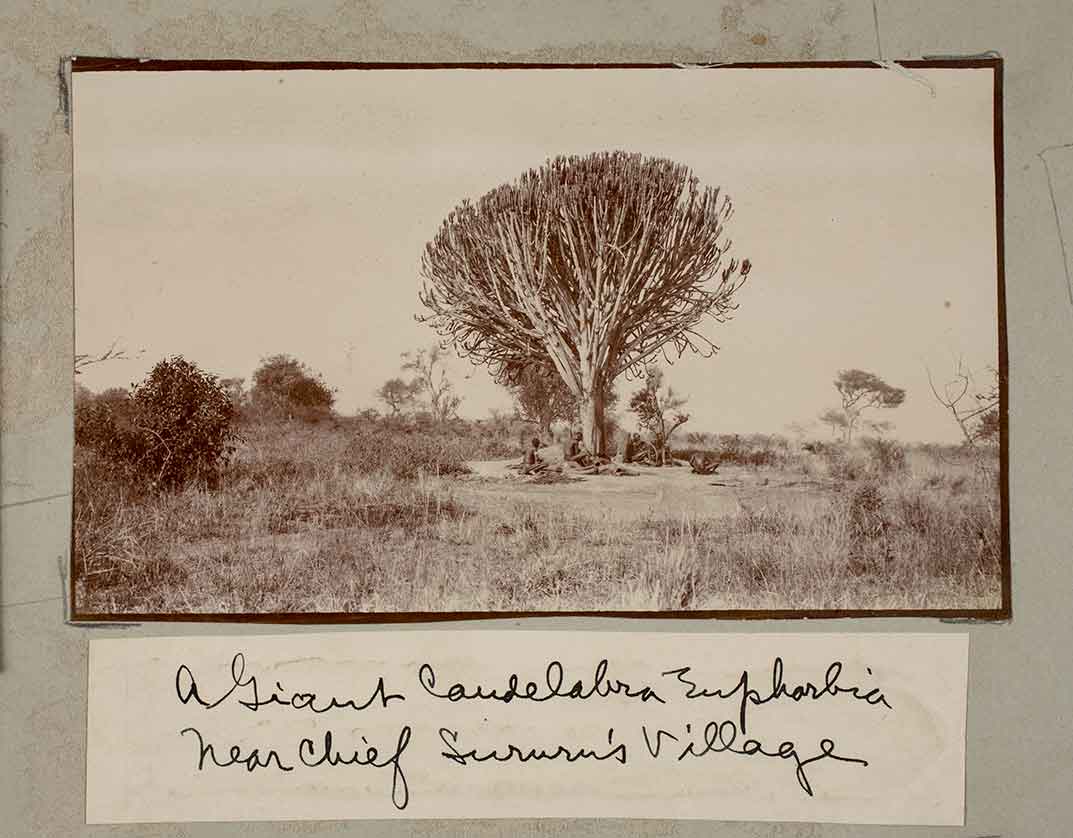 A Giant Candelabra Euphorbia
Near Chief Sururu's Village